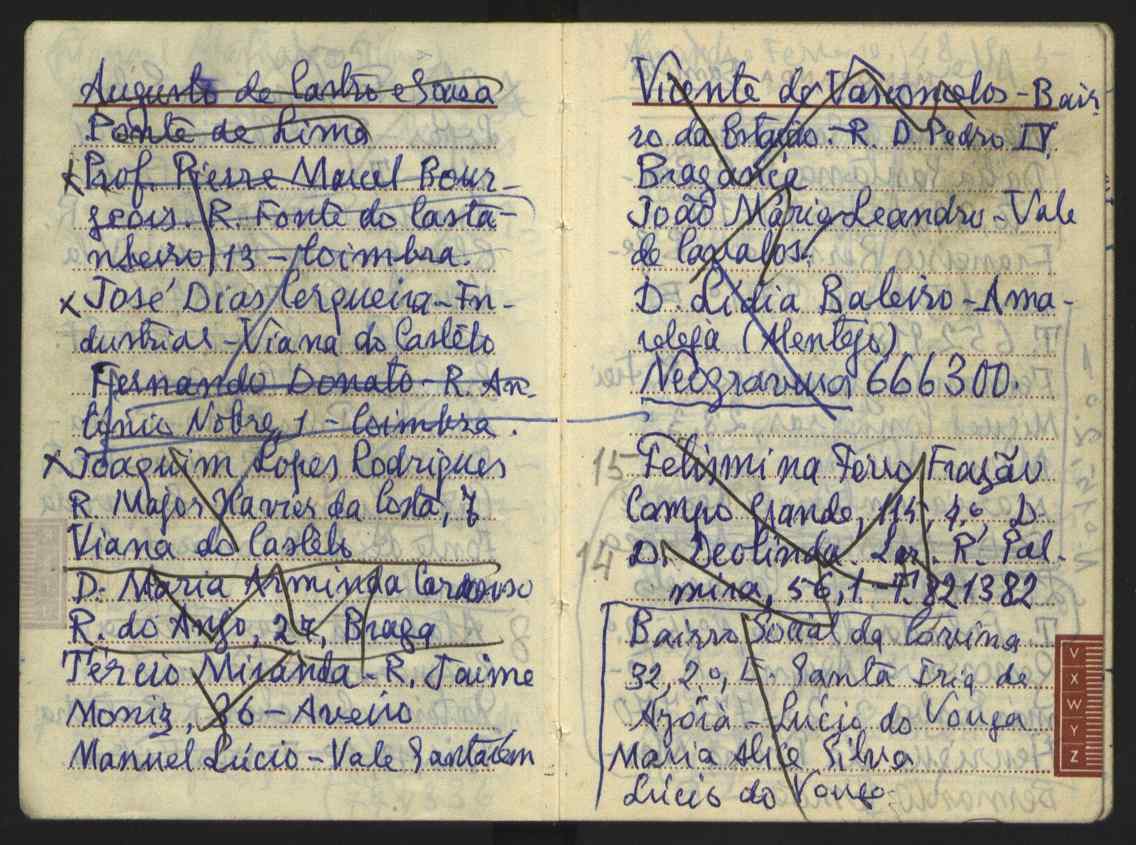 Augusto de Castro e Sousa
Ponte de Lima
x Prof. Pierre Marcel Bour-
geois. R. Fonte do Casta-
nheiro, 13 - Coimbra.
x José Dias Cerqueira - In-
dustrial - Viana do Castêlo
Fernando Donato - R. An-
tónio Nobre, 1 - Coimbra.
x Joaquim Lopes Rodrigues
R. Major Xavier da Costa, 7
Viana do Castêlo
D. Maria Arminda Cardoso
R. do Anjo, 27, Braga
Tércio Miranda - R. Jaime
Moniz, 36 - Aveiro
Manuel Lúcio - Vale Santarém
Vicente de Vasconcelos - Bair-
ro da Estação. - R. D. Pedro IV,
Bragança
João Mário Leandro - Vale
de Cavalos.
D. Lídia Baleiro - Ama-
releja (Alentejo)
Neogravura 666300.
15 Felismina Ferro Frazão
Campo Grande, 115, 4.º D.
14 D. Deolinda. Lar, R. Pal-
mira, 56, 1 - T. 821382
Bairro Social da Covina
32, 2.º, E. Santa Iria de
Azoia - Lúcio do Vouga
Maria Alice Silva
Lúcio do Vouga
V
X
W
Y
Z